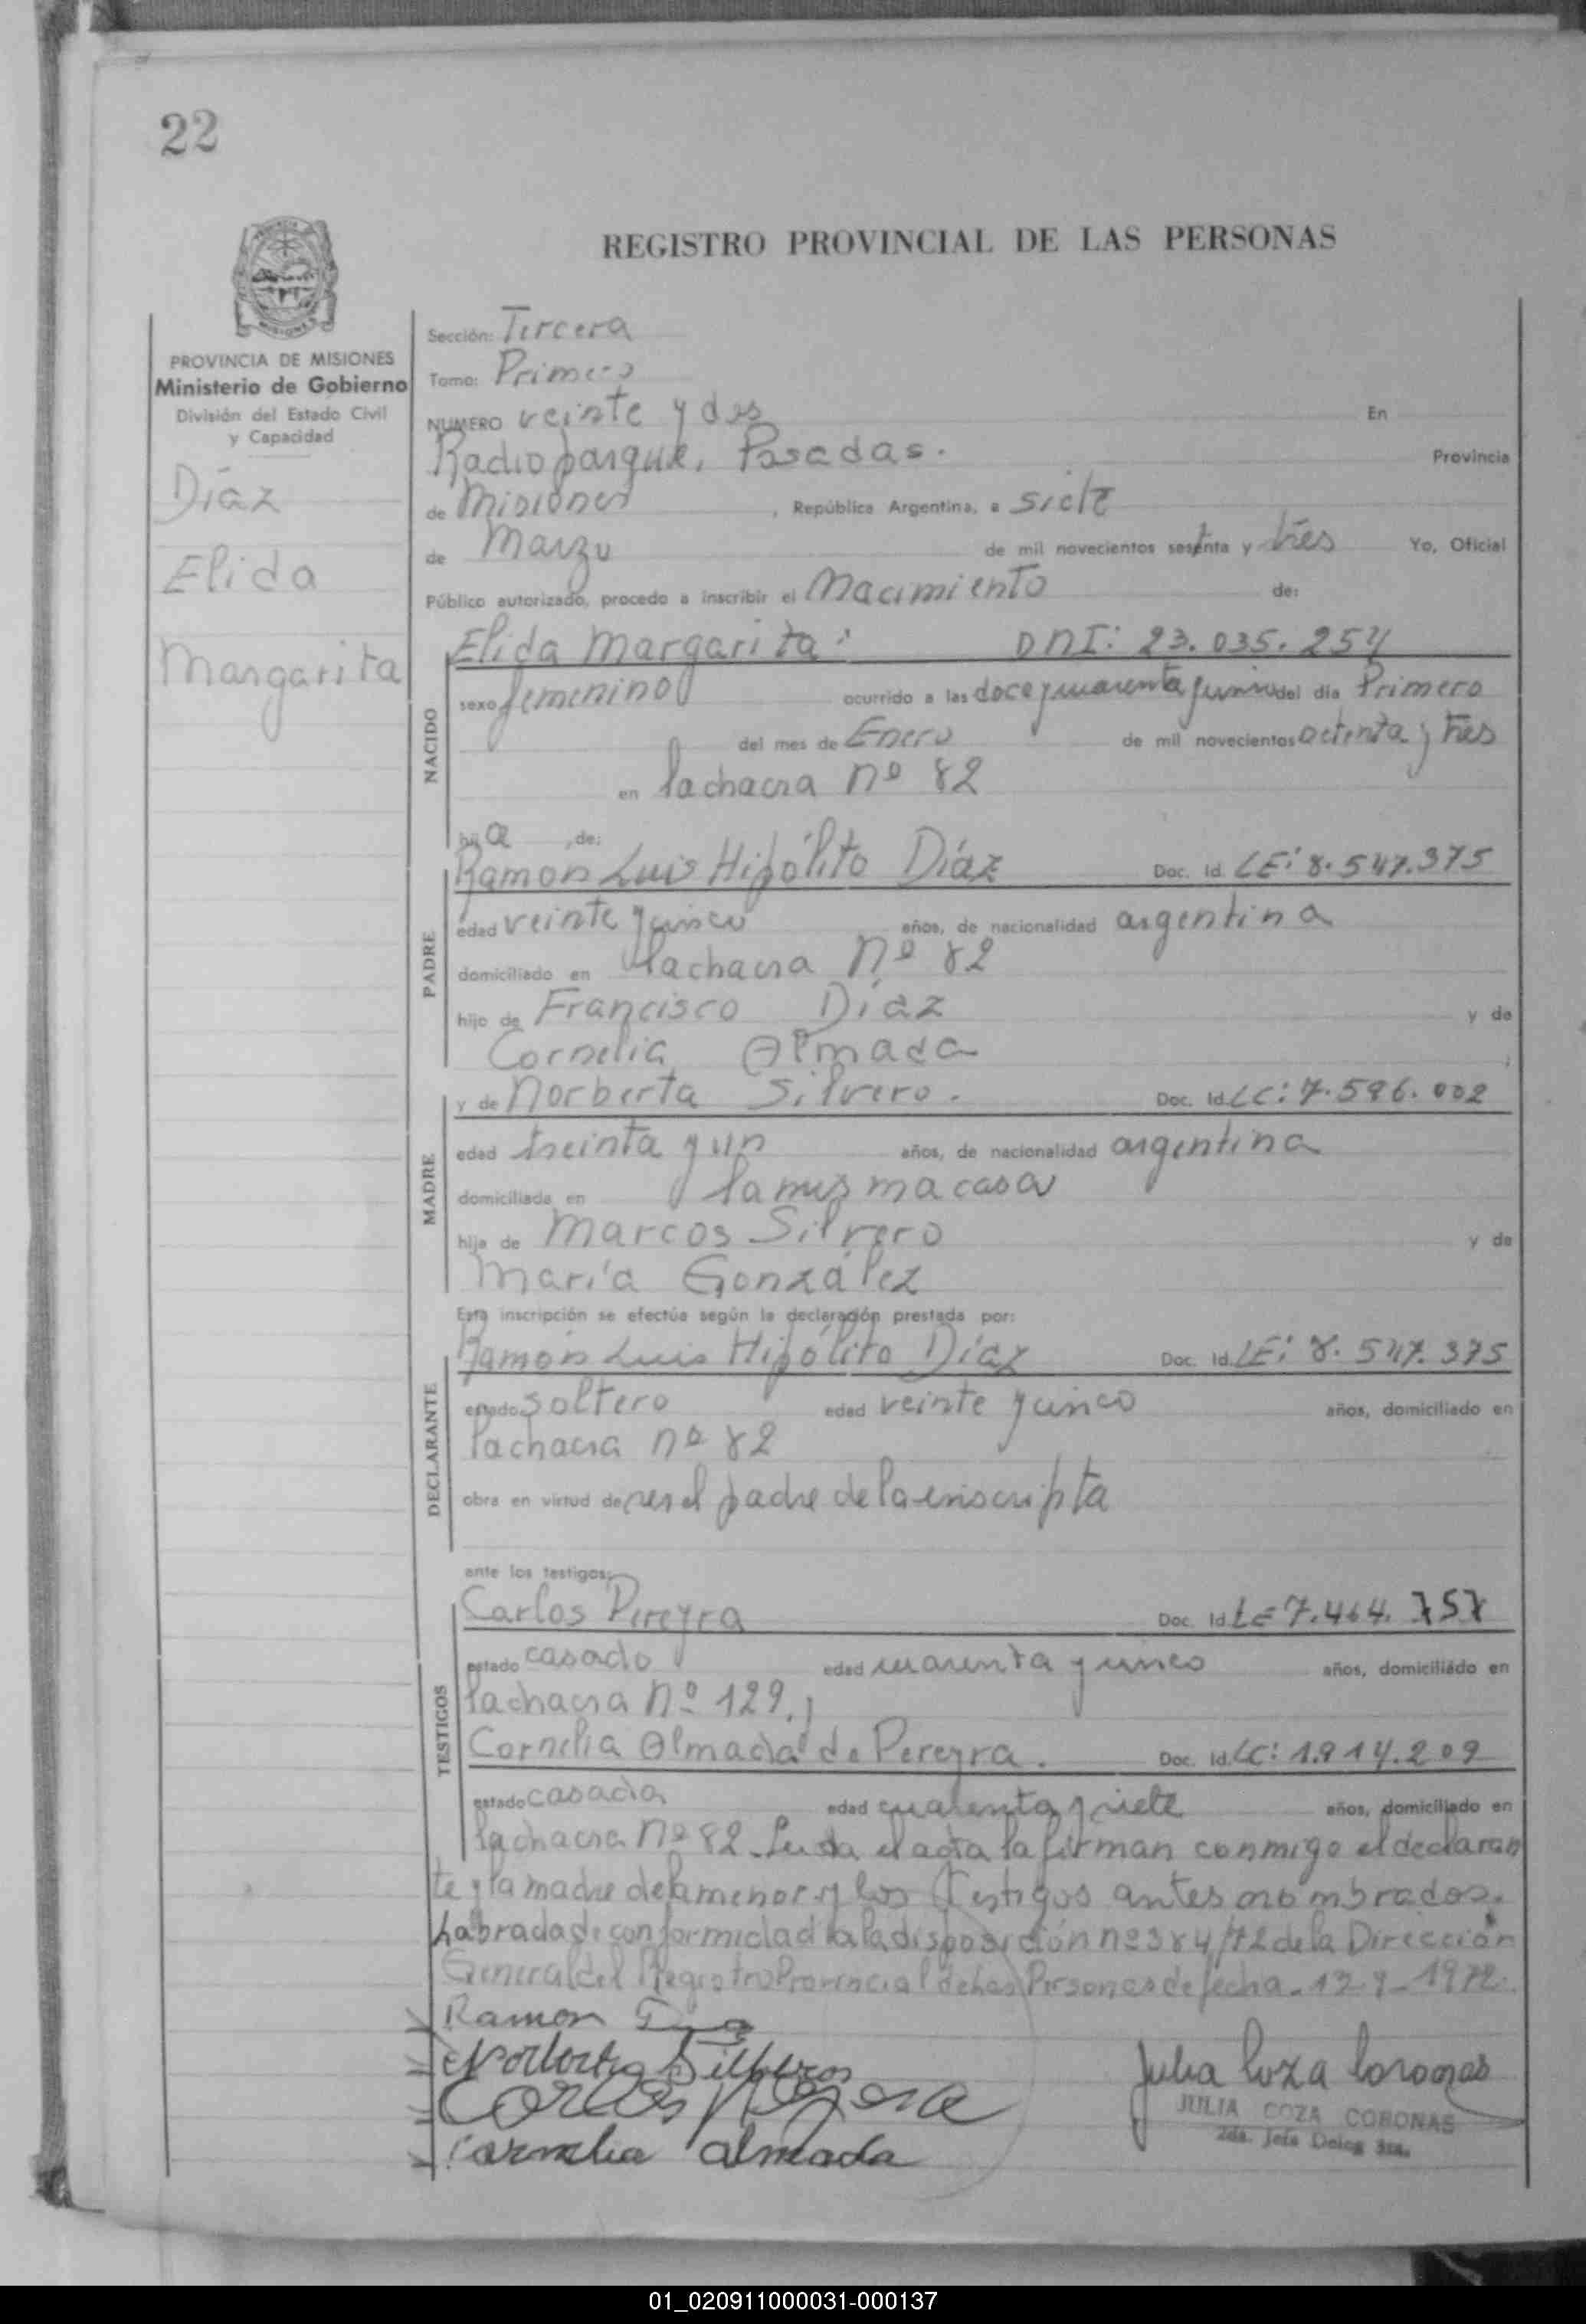 22
REGISTRO PROVINCIAL DE LAS PERSONAS
PROVINCIA DE MISIONES
Ministerio de Gobierno
División del Estado Civil
y Capacidad
Díaz
Elida
Margarita
Sección: Tercera
Tomo: Primero
NUMERO veinte y dos En
Radioparque, Posadas. Provincia
de Misiones, República Argentina, a siete
de Marzo de mil novecientos setenta y tres Yo, Oficial
Público autorizado, procedo a inscribir el Nacimiento de:
NACIDO
Elida Margarita: DNI: 23.035.254
sexo femenino ocurrido a las doce y cuarenta y cinco del día Primero
del mes de Enero de mil novecientos setenta y tres
en la chacra nº 82
hija, de:
PADRE
Ramón Luis Hipólito Díaz Doc. Id. LE: 8.547.375
edad veinte y cinco años, de nacionalidad argentina
domiciliado en la chacra Nº 82
hijo de Francisco Díaz y de
Cornelia Almada
MADRE
y de Norberta Silvero. Doc. Id. LC: 7.596.002
edad treinta y un años, de nacionalidad argentina
domiciliada en la misma casa
hija de Marcos Silvero y de
María González
Esta inscripción se efectúa según la declaración prestada por:
DECLARANTE
Ramón Luis Hipólito Díaz Doc. Id. LE: 8.547.375
estado soltero edad veinte y cinco años, domiciliado en
la chacra nº 82
obra en virtud de ser el padre de la inscripta
ante los testigos:
TESTIGOS
Carlos Pereyra Doc. Id. LE 7.464.757
estado casado edad cuarenta y cinco años, domiciliado en
la chacra Nº 129.,
Cornelia Almada de Pereyra. Doc. Id. LC: 1.914.209
estado casada edad cuarenta y siete años, domiciliado en
la chacra Nº 82. Leida el acta la firman conmigo el declaran
te y la madre de la menor y los testigos antes nombrados.
Labrada de conformidad a la disposición nº 384/72 de la Dirección
General del Registro Provincial de las Personas de fecha - 12-9-1972.
Ramon
Norberta Silveros
Carlos Pereyra
Cornelia Almada
Julia Coza Coronas
JULIA COZA CORONAS
2da. Jefa Deleg 3ra.
01_020911000031-000137